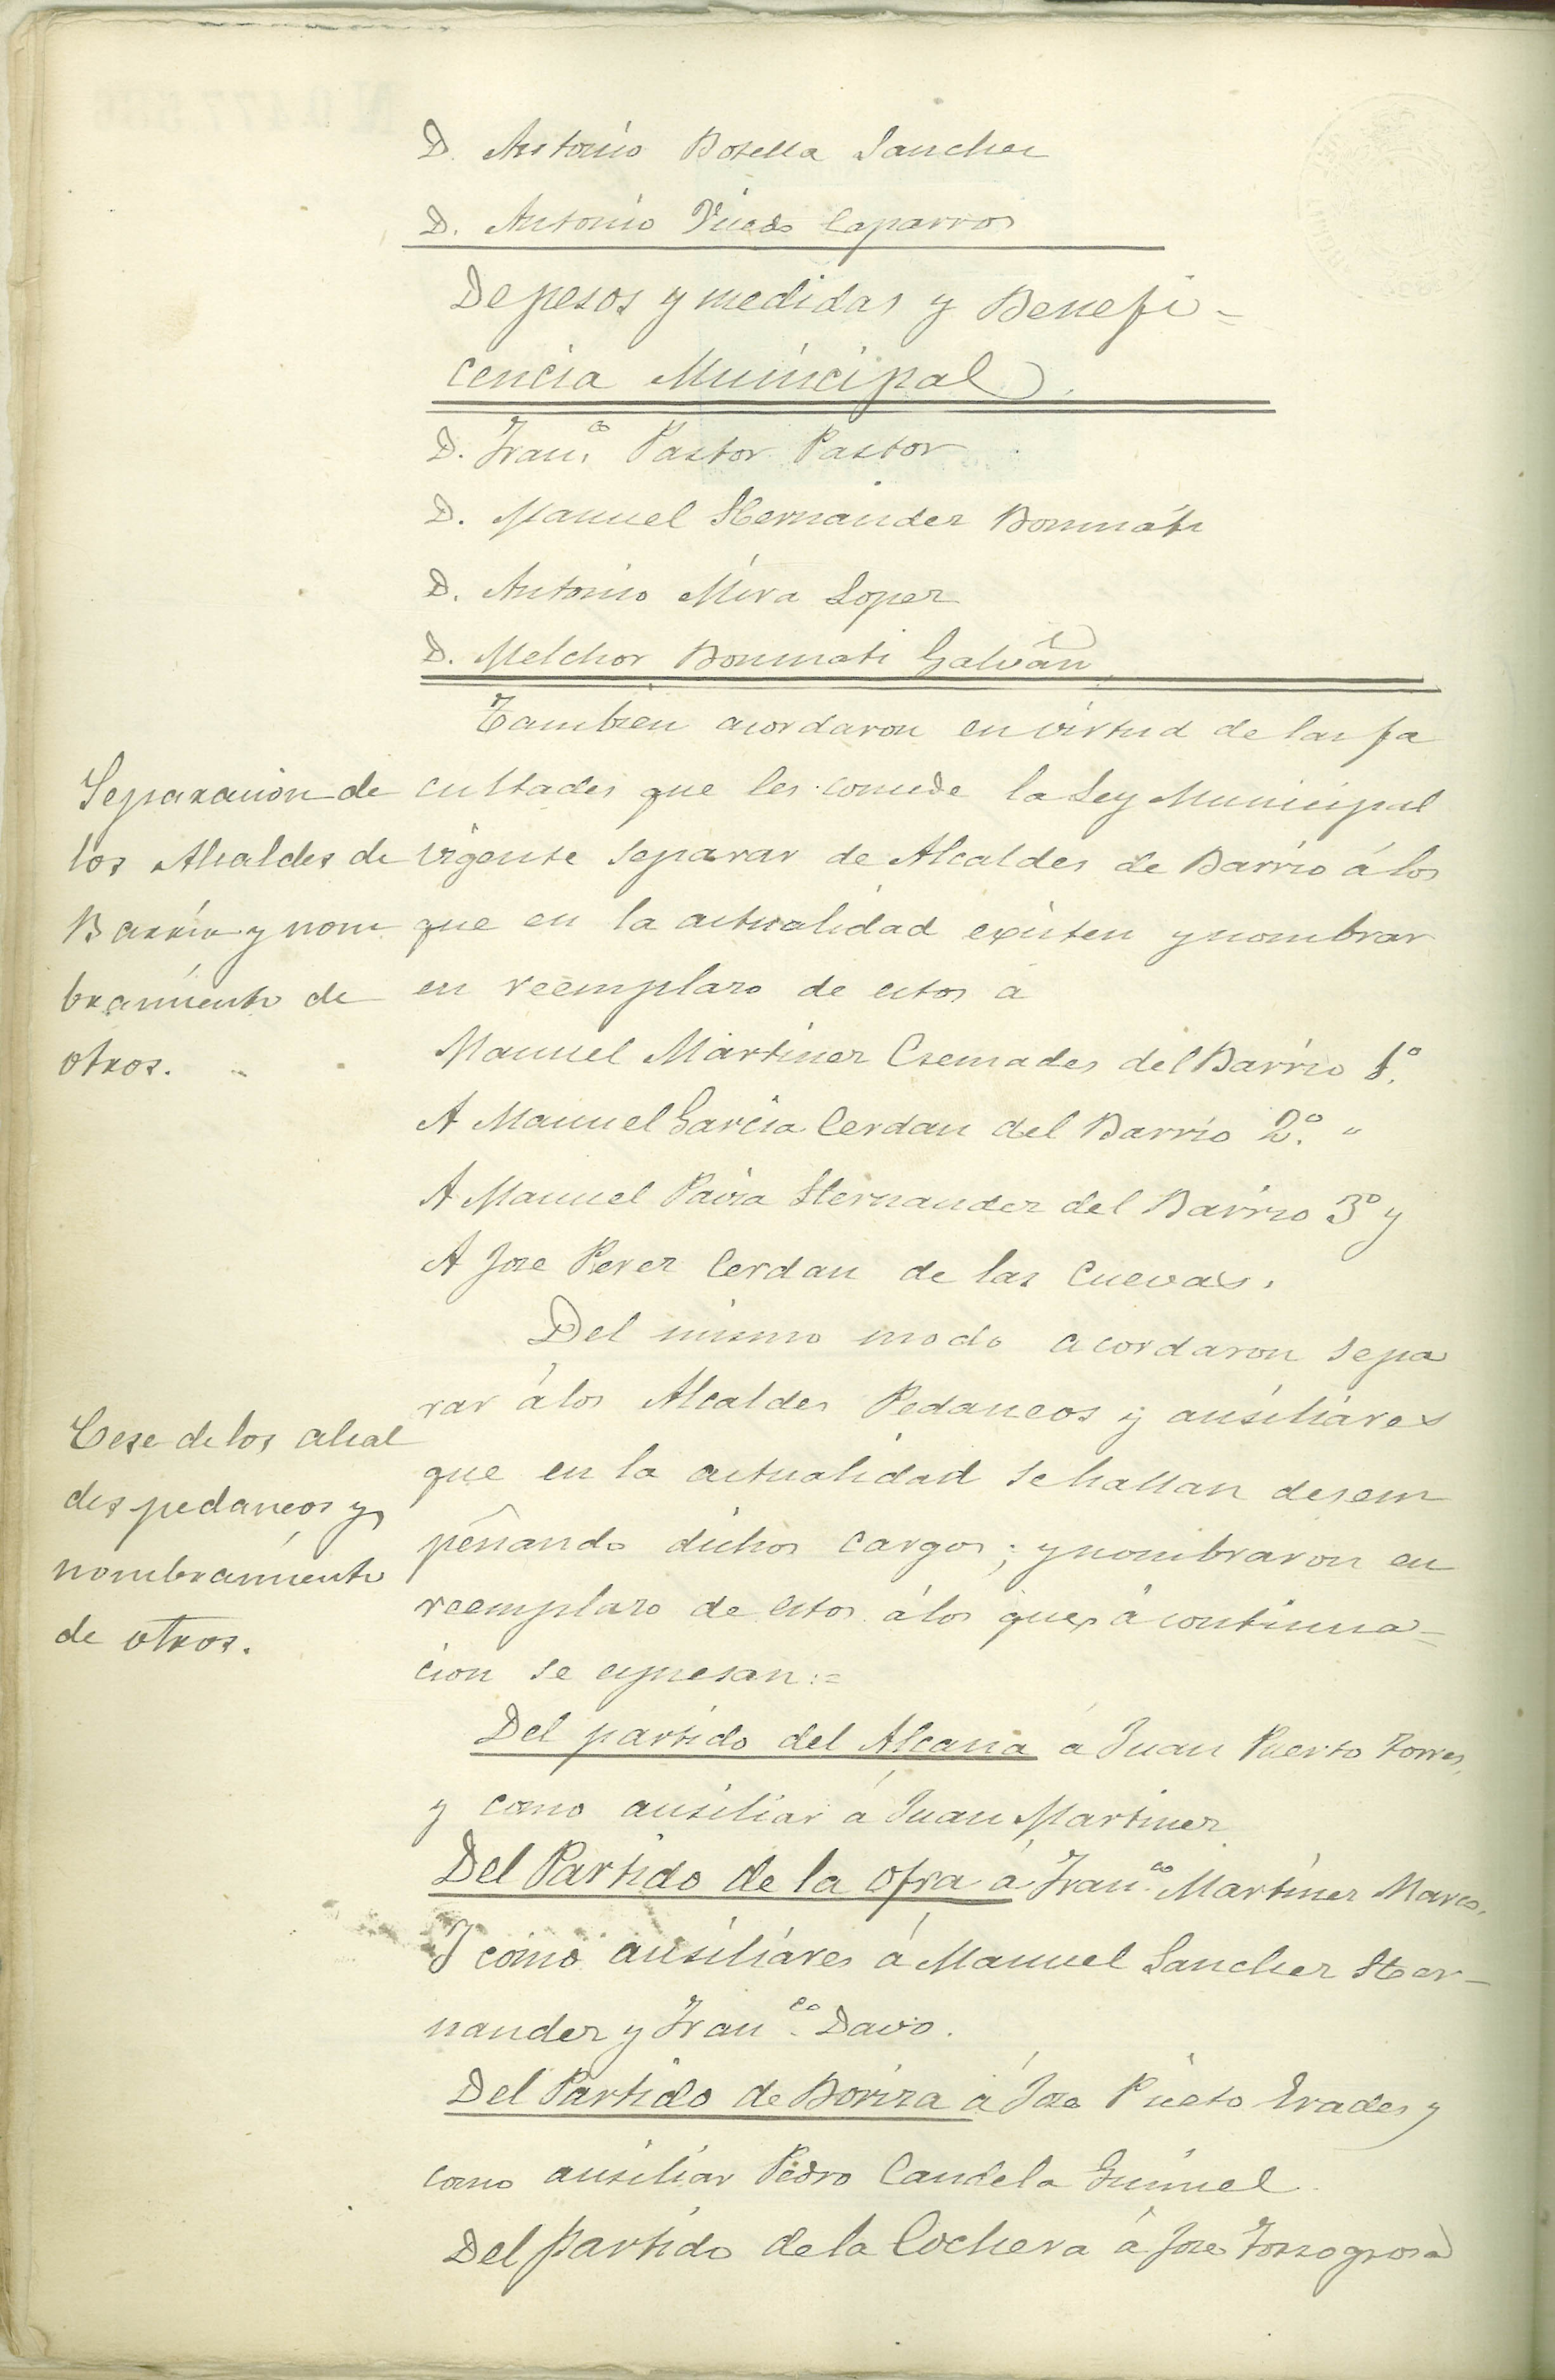 D. Antonio Botella Sanchez
D. Antonio Vicedo Caparros
De pesos y medidas y Benefi-
cencia Municipal.
D. Fran.co Pastor Pastor
D. Manuel Hernandez Bonmáti
D. Antonio Mira Lopez
D. Melchor Bonmati Galvañ
Tambien acordaron en virtud de las fa
Separacion de
los Alcaldes de
Barrio y nom
bramiento de
otros.
cultades que les concede la Ley Municipal
vigente separar de Alcaldes de Barrio á los
que en la actualidad existen y nombrar
en reemplazo de estos á
Manuel Martinez Cremades del Barrio 1.º
A Manuel Garcia Cerdan del Barrio 2.º "
A Manuel Pavia Hernandez del Barrio 3º y
A Jose Perez Cerdan de las Cuevas.
Del mismo modo acordaron sepa
rar á los Alcaldes Pedaneos y ausiliares
Cese de los alcal
des pedaneos y
nombramiento
de otros.
que en la actualidad se hallan desem
peñando dichos cargos; y nombraron en
reemplazo de estos á los que á continua=
cion se espresan:=
Del partido del Alcana á Juan Puerto Torres,
y como ausiliar á Juan Martinez
Del Partido de la Ofra á Fran.co Martinez Marco,
Y como ausiliares á Manuel Sanchez Her-
nandez y Fran.co Davo.
Del Partido de Boriza á Jose Prieto Erades y
como ausiliar Pedro Candela
Del partido de la Cochera á Jose Torregrosa